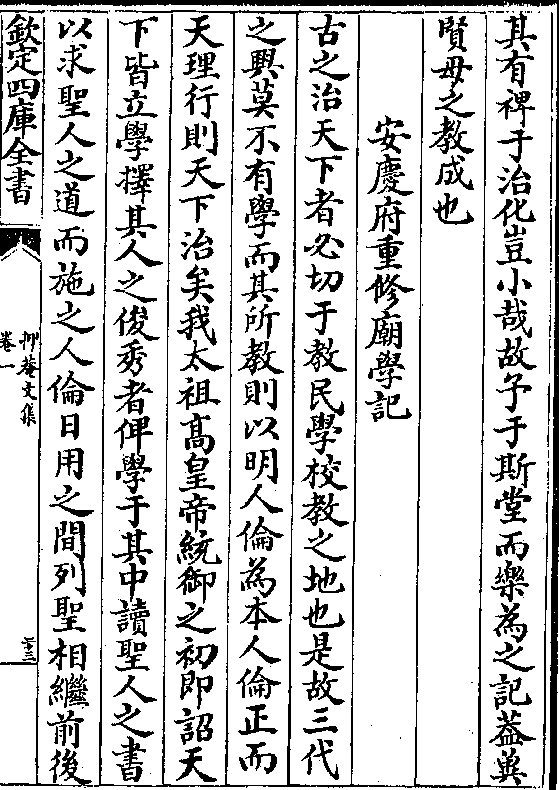 其有裨于治化豈小哉故予于斯堂而樂為之記葢㒷
賢母之教成也
安慶府重修廟學記
古之治天下者必切于教民學校教之地也是故三代
之興莫不有學而其所教則以明人倫為本人倫正而
天理行則天下治矣我太祖髙皇帝統御之初即詔天
下皆立學擇其人之俊秀者俾學于其中讀聖人之書
以求聖人之道而施之人倫日用之間列聖相繼前後
欽定四庫全書
抑菴文集
卷一
二十三